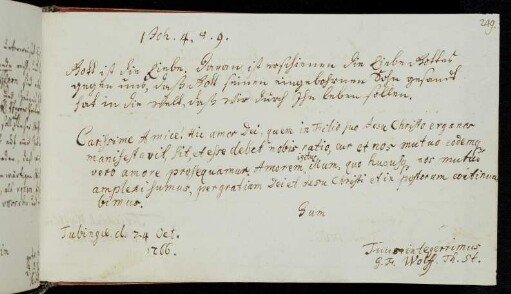 249.
1 Joh. 4. 8. 9.
Gott ist die Liebe. Daran ist erschienen die Liebe Gottes
gegen uns, daß Gott seinen eingebohrnen Sohn gesandt
hat in die Welt, daß wir durch Ihn leben sollen.
Carissime Amice! Hic amor Dei, quem in Filio suo Jesu Christo erga nos
manifestavit, sit, et esse debet nobis ratio, ut et nos mutuo eodemq
vero amore prosequamur. Amorem istum, quo hucusq nos mutuo
amplexi sumus, per gratiam Dei et Jesu Christi et in posterum continua
bimus.
Sum
Tubingæ d. 24 Oct.
1766.
Tuus integerrimus
G. Fr. Wolff. Th. St.